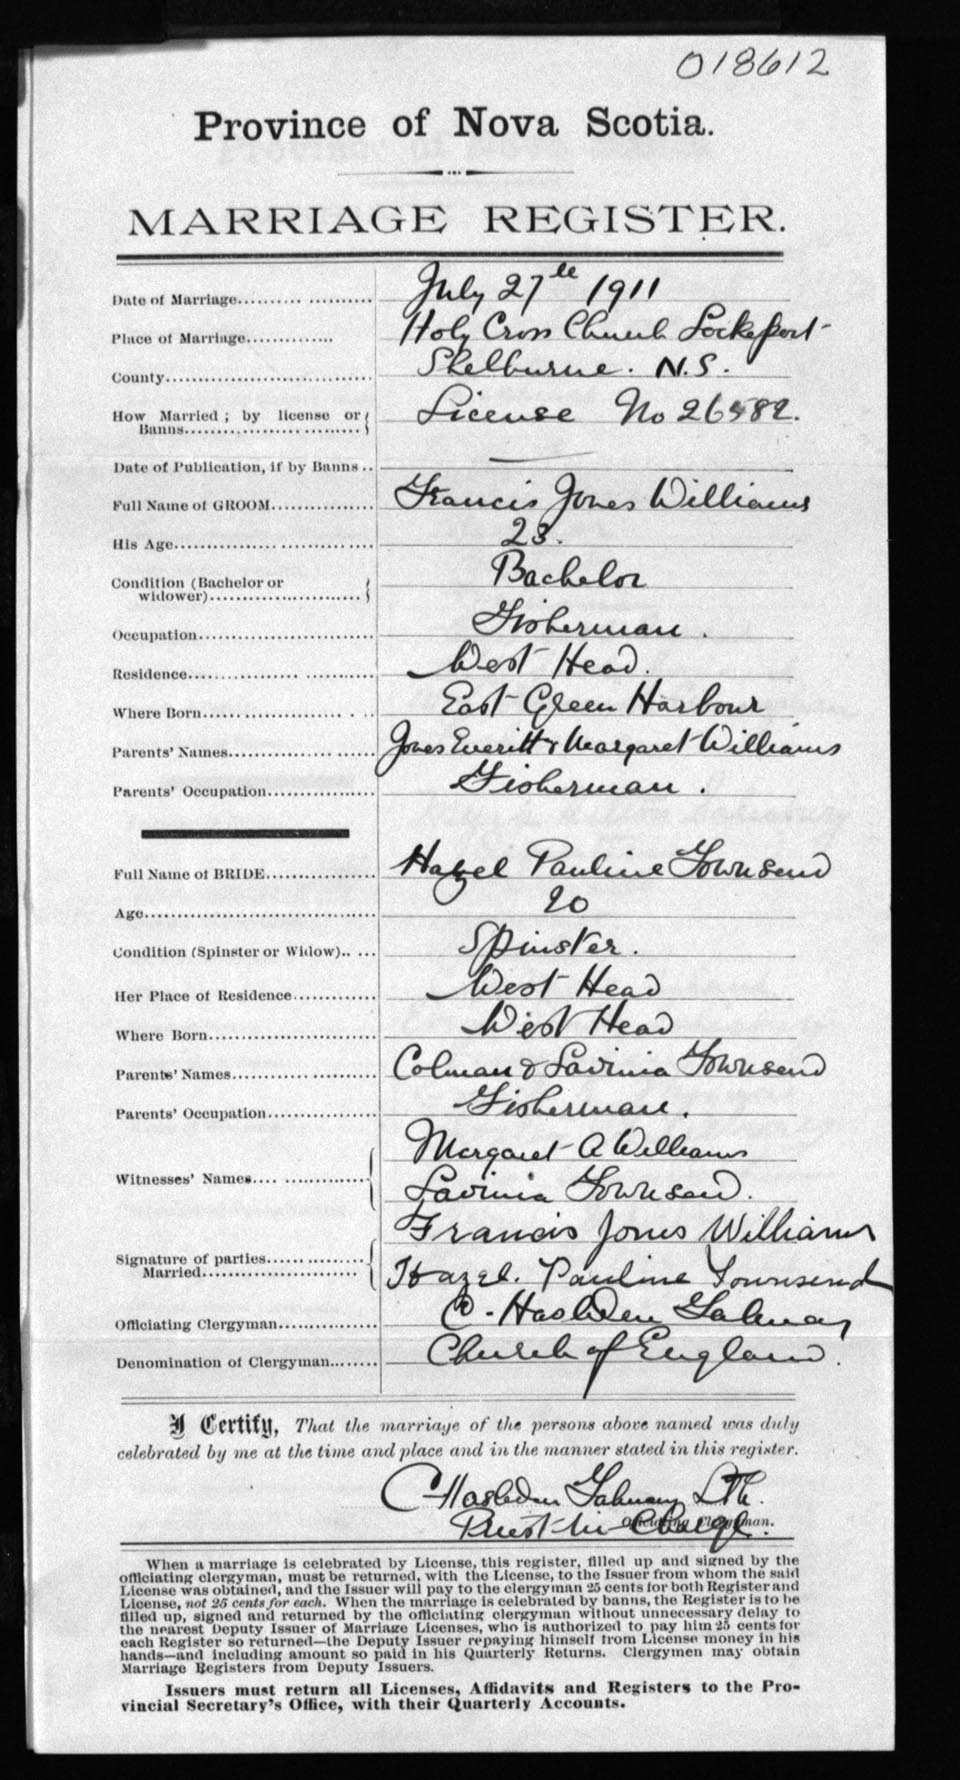 018612
Province of Nova Scotia.
MARRIAGE REGISTER.
Date of Marriage.......... July 27th 1911
Place of Marriage............. Holy Cross Church Lockeport
County............................. Shelburne. N.S.
How Married; by license or License No 26582.
Banns.............................
Date of Publication, if by Banns.. —
Full Name of GROOM................ Francis Jones Williams
His Age............................. 23.
Condition (Bachelor or Bachelor
widower)........................
Occupation......................... Fisherman.
Residence........................... West Head.
Where Born......................... East Green Harbour
Parents' Names..................... Jones Everitt & Margaret Williams
Parents' Occupation................ Fisherman.
Full Name of BRIDE................ Hazel Pauline Townsend
Age................................. 20
Condition (Spinster or Widow)..... Spinster.
Her Place of Residence............. West Head
Where Born......................... West Head
Parents' Names..................... Colman & Lavinia Townsend
Parents' Occupation................ Fisherman.
Margaret A Williams
Witnesses' Names...................
Lavinia Townsend.
Francis Jones Williams
Signature of parties................
Married.........................
Hazel. Pauline Townsend
Officiating Clergyman............... C.
Denomination of Clergyman........ Church of England.
I Certify, That the marriage of the persons above named was duly
celebrated by me at the time and place and in the manner stated in this register.
C L.Th.
Priest-in-Charge.
Officiating Clergyman.
When a marriage is celebrated by License, this register, filled up and signed by the
officiating clergyman, must be returned, with the License, to the Issuer from whom the said
License was obtained, and the Issuer will pay to the clergyman 25 cents for both Register and
License, not 25 cents for each. When the marriage is celebrated by banns, the Register is to be
filled up, signed and returned by the officiating clergyman without unnecessary delay to
the nearest Deputy Issuer of Marriage Licenses, who is authorized to pay him 25 cents for
each Register so returned—the Deputy Issuer repaying himself from License money in his
hands—and including amount so paid in his Quarterly Returns. Clergymen may obtain
Marriage Registers from Deputy Issuers.
Issuers must return all Licenses, Affidavits and Registers to the Pro-
vincial Secretary's Office, with their Quarterly Accounts.